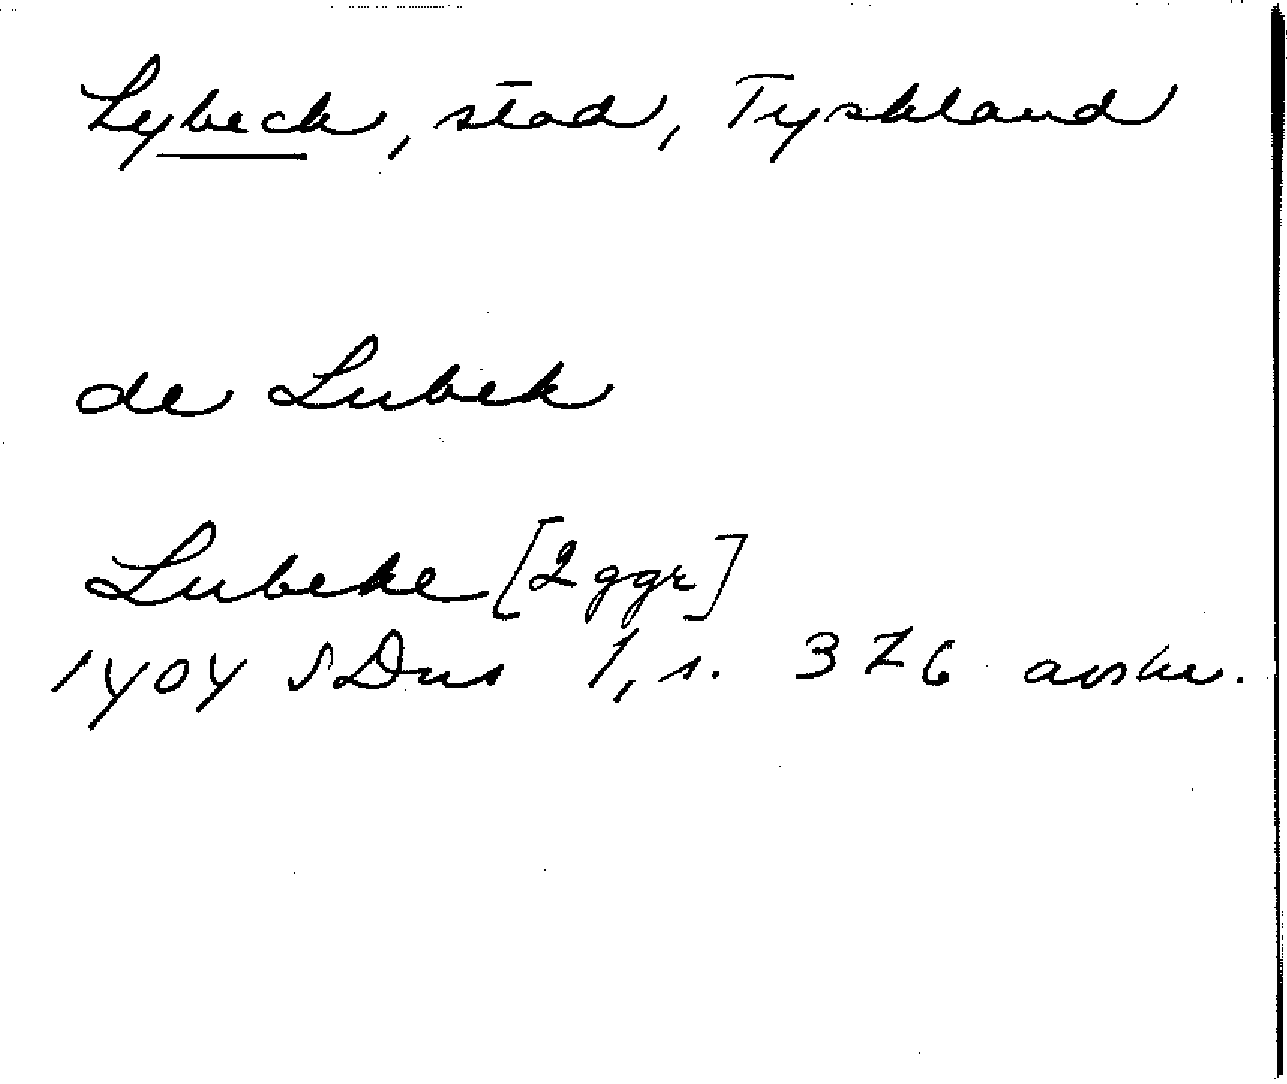 Lybeck, stad, Tyskland
de Lubek
Lubeke [2 ggr]
1404 SDns 1, s. 326 avskr.